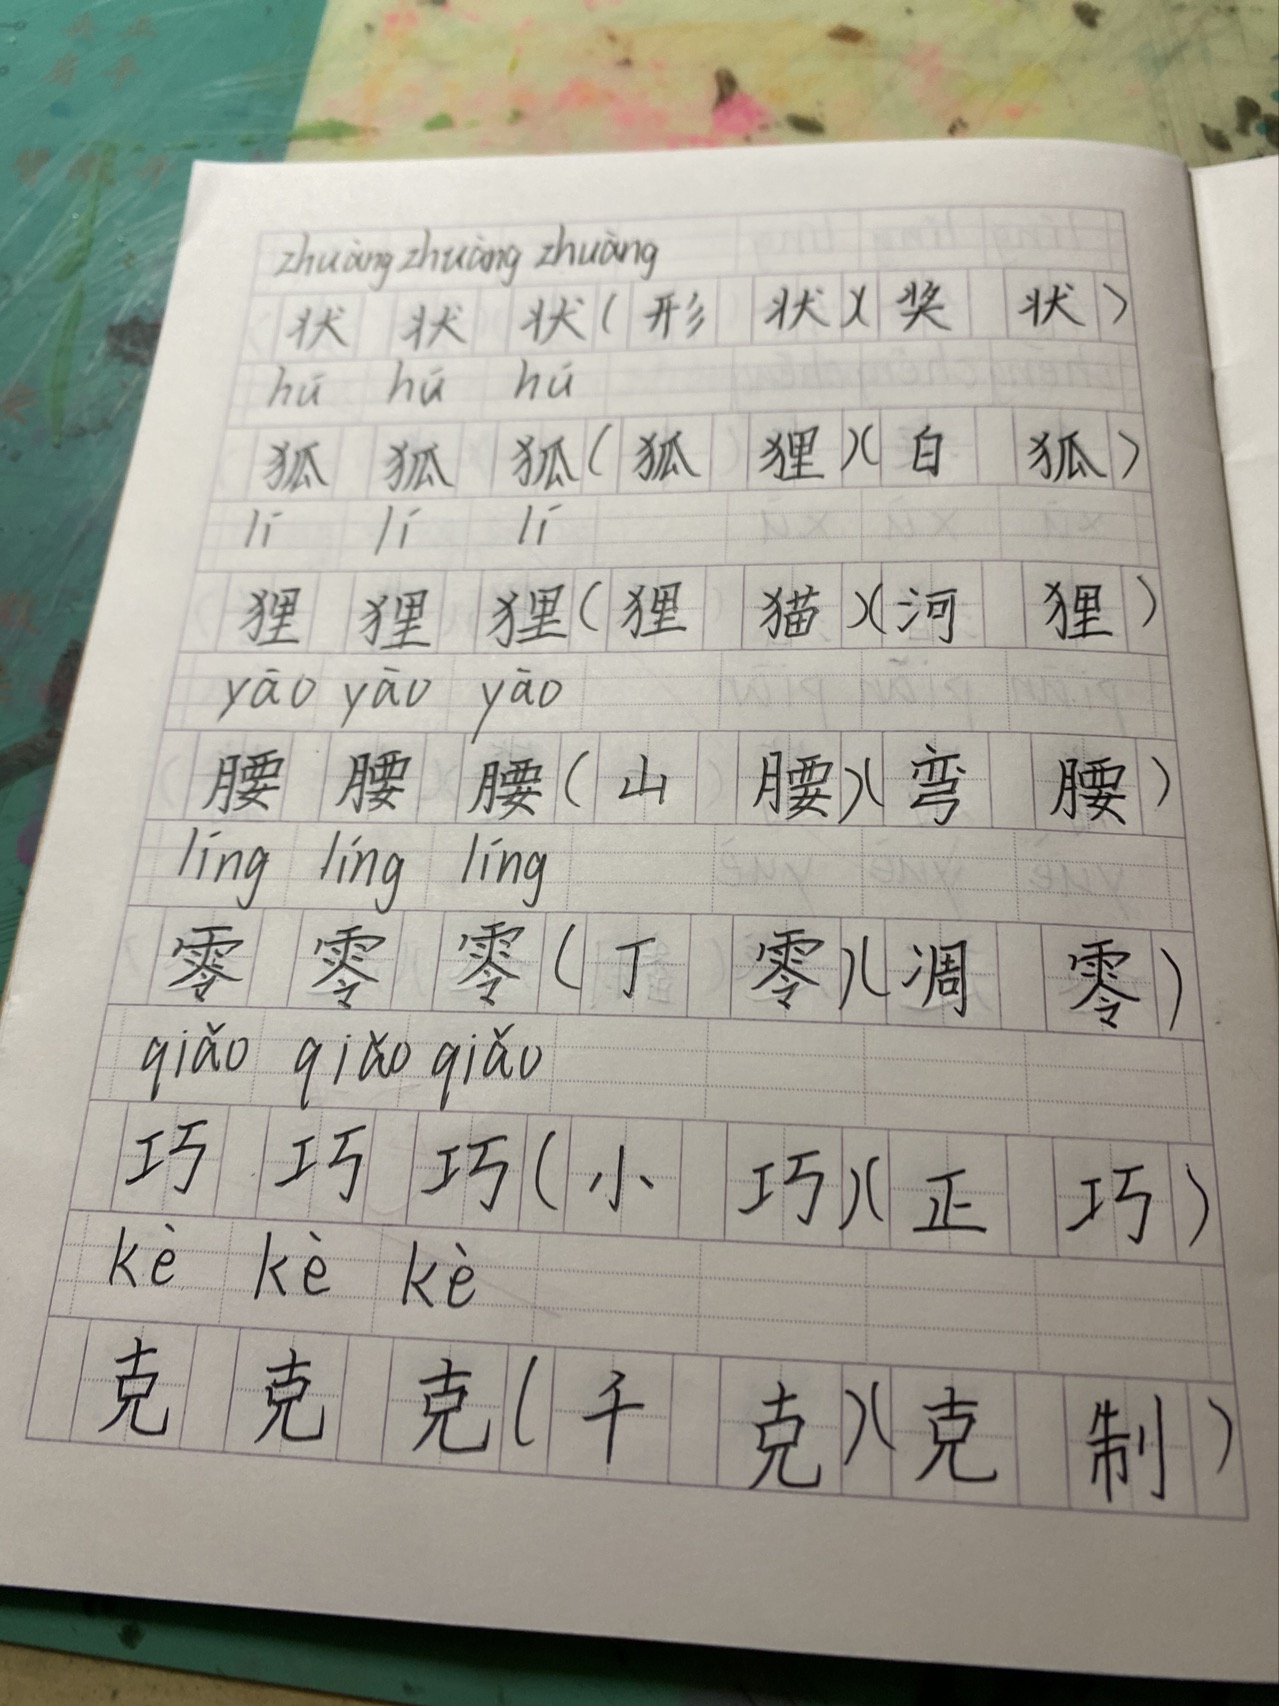 zhuàng zhuàng zhuàng
状 状 状 ( 形 状 ) ( 奖 状 )
hú hú hú
狐 狐 狐 ( 狐 狸 ) ( 白 狐 )
lí lí lí
狸 狸 狸 ( 狸 猫 ) ( 河 狸 )
yāo yāo yāo
腰 腰 腰 ( 山 腰 ) ( 弯 腰 )
líng líng líng
零 零 零 ( 丁 零 ) ( 凋 零 )
qiǎo qiǎo qiǎo
巧 巧 巧 ( 小 巧 ) ( 正 巧 )
kè kè kè
克 克 克 ( 千 克 ) ( 克 制 )